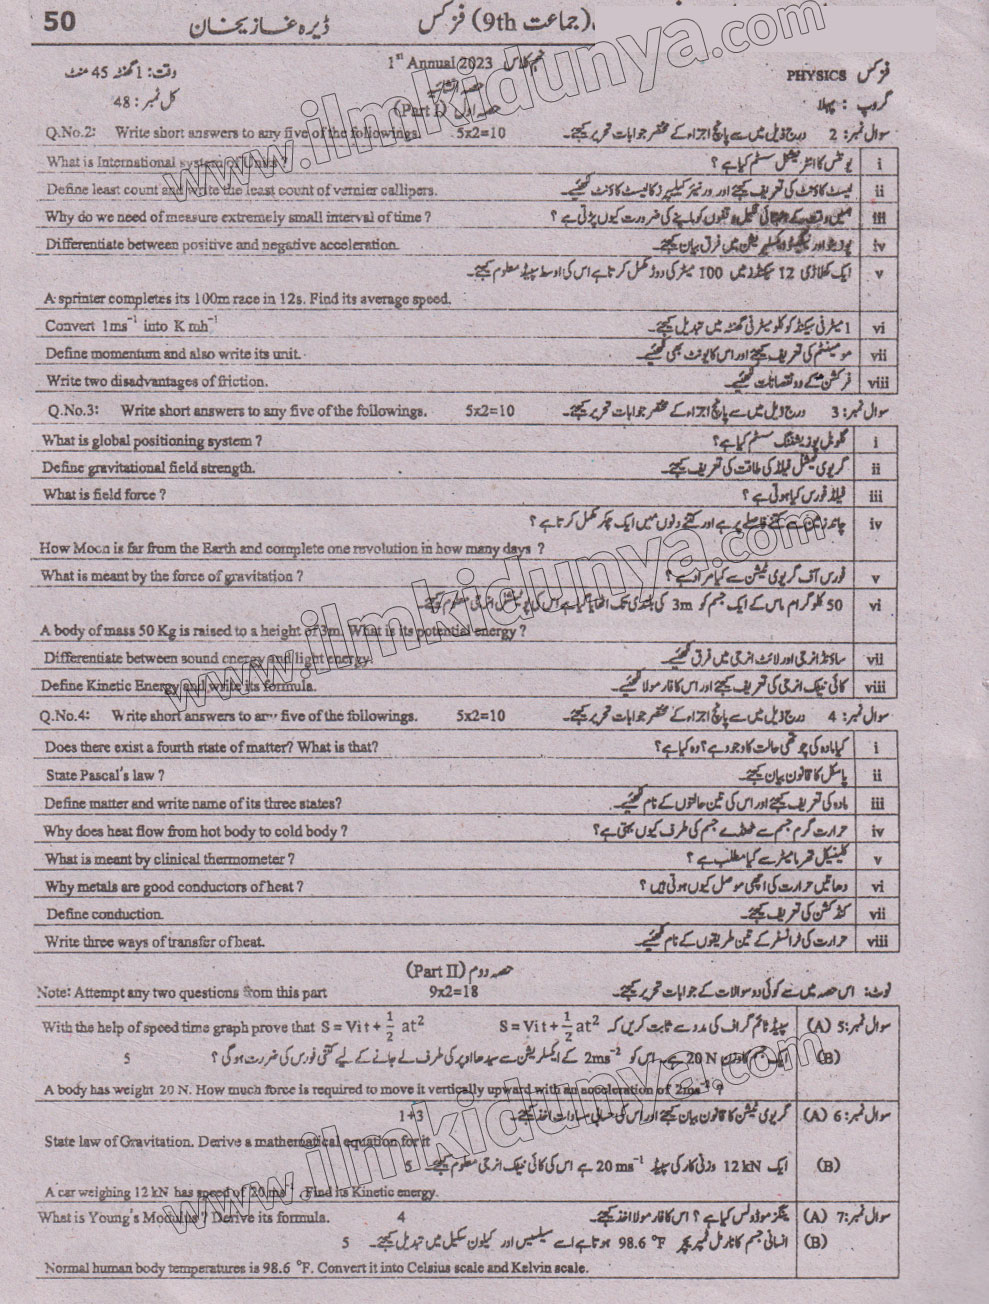 50 ڈیرہ غازیخان (جماعت 9th) فزکس
1st Annual 2023 نہم کلاس
وقت: 1 گھنٹہ 45 منٹ حصہ انشائیہ PHYSICS فزکس
کل نمبر: 48 حصہ اول (Part I) گروپ : پہلا
Q.No.2: Write short answers to any five of the followings. 5x2=10 سوال نمبر: 2 درج ذیل میں سے پانچ اجزاء کے مختصر جوابات تحریر کیجئے۔
What is International system of Units ? یونٹس کا انٹرنیشنل سسٹم کیا ہے ؟ i
Define least count and write the least count of vernier callipers. لیسٹ کاؤنٹ کی تعریف کیجئے اور ورنیئر کیلیپرز کا لیسٹ کاؤنٹ لکھیئے۔ ii
Why do we need of measure extremely small interval of time ? ہمیں وقت کے انتہائی قلیل وقفوں کو ماپنے کی ضرورت کیوں پڑتی ہے ؟ iii
Differentiate between positive and negative acceleration. پوزیٹو اور نیگیٹو ایکسلریشن میں فرق بیان کیجئے۔ iv
ایک کھلاڑی 12 سیکنڈز میں 100 میٹر کی دوڑ مکمل کرتا ہے اس کی اوسط سپیڈ معلوم کیجئے۔ v
A sprinter completes its 100m race in 12s. Find its average speed.
Convert 1ms⁻¹ into K mh⁻¹ 1 میٹر فی سیکنڈ کو کلومیٹر فی گھنٹہ میں تبدیل کیجئے۔ vi
Define momentum and also write its unit. مومینٹم کی تعریف کیجئے اور اس کا یونٹ بھی لکھیئے۔ vii
Write two disadvantages of friction. فرکشن کے دو نقصانات لکھیئے۔ viii
Q.No.3: Write short answers to any five of the followings. 5x2=10 سوال نمبر: 3 درج ذیل میں سے پانچ اجزاء کے مختصر جوابات تحریر کیجئے۔
What is global positioning system ? گلوبل پوزیشننگ سسٹم کیا ہے؟ i
Define gravitational field strength. گریوی ٹیشنل فیلڈ کی طاقت کی تعریف کیجئے۔ ii
What is field force ? فیلڈ فورس کیا ہوتی ہے ؟ iii
چاند زمین سے کتنے فاصلے پر ہے اور کتنے دنوں میں ایک چکر مکمل کرتا ہے ؟ iv
How Moon is far from the Earth and complete one revolution in how many days ?
What is meant by the force of gravitation ? فورس آف گریوی ٹیشن سے کیا مراد ہے ؟ v
50 کلو گرام ماس کے ایک جسم کو 3m کی بلندی تک اٹھایا گیا ہے اس کی پوٹینشل انرجی معلوم کیجئے۔ vi
A body of mass 50 Kg is raised to a height of 3m. What is its potential energy ?
Differentiate between sound energy and light energy. ساؤنڈ انرجی اور لائٹ انرجی میں فرق لکھیئے۔ vii
Define Kinetic Energy and write its formula. کائی نیٹک انرجی کی تعریف کیجئے اور اس کا فارمولا لکھیئے۔ viii
Q.No.4: Write short answers to any five of the followings. 5x2=10 سوال نمبر: 4 درج ذیل میں سے پانچ اجزاء کے مختصر جوابات تحریر کیجئے۔
Does there exist a fourth state of matter? What is that? کیا مادہ کی چوتھی حالت کا وجود ہے؟ وہ کیا ہے؟ i
State Pascal's law ? پاسکل کا قانون بیان کیجئے۔ ii
Define matter and write name of its three states? مادہ کی تعریف کیجئے اور اس کی تین حالتوں کے نام لکھیئے۔ iii
Why does heat flow from hot body to cold body ? حرارت گرم جسم سے ٹھنڈے جسم کی طرف کیوں بہتی ہے؟ iv
What is meant by clinical thermometer ? کلینیکل تھرمامیٹر سے کیا مطلب ہے ؟ v
Why metals are good conductors of heat ? دھاتیں حرارت کی اچھی موصل کیوں ہوتی ہیں ؟ vi
Define conduction. کنڈکشن کی تعریف کیجئے۔ vii
Write three ways of transfer of heat. حرارت کی ٹرانسفر کے تین طریقوں کے نام لکھیئے۔ viii
حصہ دوم (Part II)
Note: Attempt any two questions from this part 9x2=18 نوٹ: اس حصہ میں سے کوئی دو سوالات کے جوابات تحریر کیجئے۔
With the help of speed time graph prove that S = Vit + 1/2 at² سپیڈ ٹائم گراف کی مدد سے ثابت کریں کہ S = Vit + 1/2 at² سوال نمبر: 5 (A)
5 ایک جسم کا وزن 20 N ہے۔ اس کو 2ms⁻² کے ایکسلریشن سے سیدھا اوپر کی طرف لے جانے کے لیے کتنی فورس کی ضرورت ہوگی ؟ (B)
A body has weight 20 N. How much force is required to move it vertically upward with an acceleration of 2ms⁻² ?
1+3 گریوی ٹیشن کا قانون بیان کیجئے اور اس کی حسابی مساوات اخذ کیجئے۔ سوال نمبر: 6 (A)
State law of Gravitation. Derive a mathematical equation for it
5 ایک 12 kN وزنی کار کی سپیڈ 20 ms⁻¹ ہے اس کی کائی نیٹک انرجی معلوم کیجئے۔ (B)
A car weighing 12 kN has speed of 20 ms⁻¹. Find its Kinetic energy.
What is Young's Modulus ? Derive its formula. 4 ینگز موڈولس کیا ہے ؟ اس کا فارمولا اخذ کیجئے۔ سوال نمبر: 7 (A)
5 انسانی جسم کا نارمل ٹمپریچر 98.6 °F ہوتا ہے اسے سیلسیس اور کیلون سکیل میں تبدیل کیجئے۔ (B)
Normal human body temperatures is 98.6 °F. Convert it into Celsius scale and Kelvin scale.
www.ilmkidunya.com
www.ilmkidunya.com
www.ilmkidunya.com